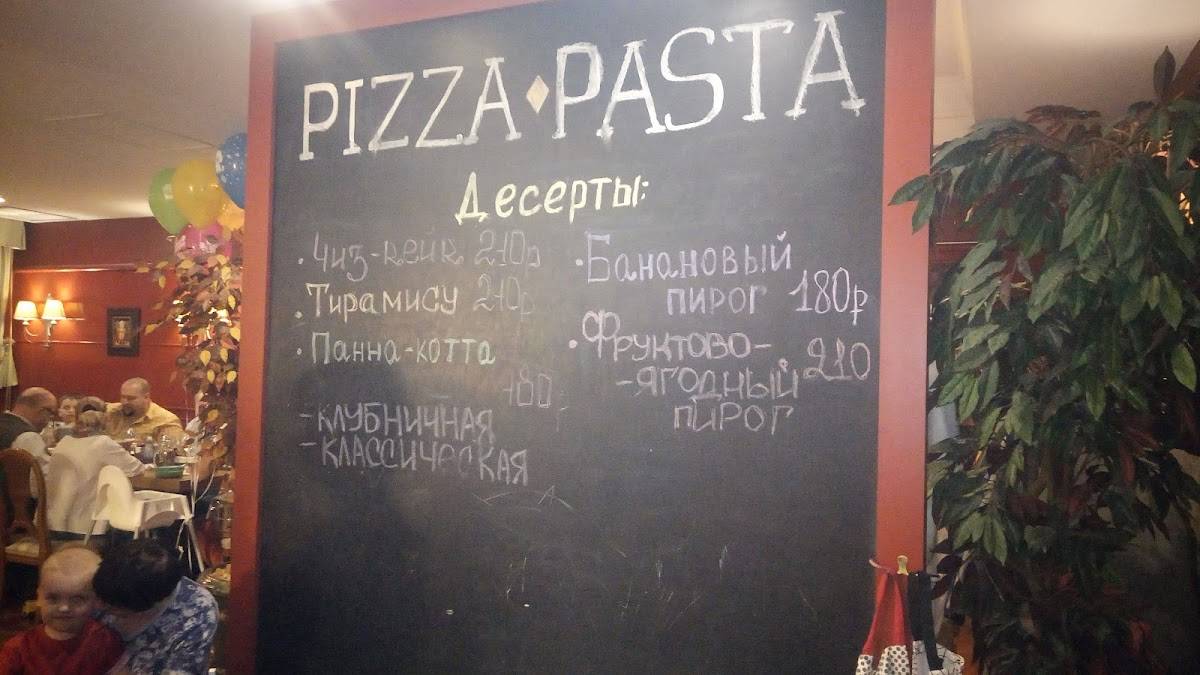 PIZZA PASTA
Десерты:
Чиз-кейк 210р
Тирамису 210р
Панна-котта
180
-КЛУБНИЧНАЯ
-КЛАССИЧЕСКАЯ
Банановый
пирог 180р
Фруктово-
-ЯГОДНЫЙ 210
ПИРОГ